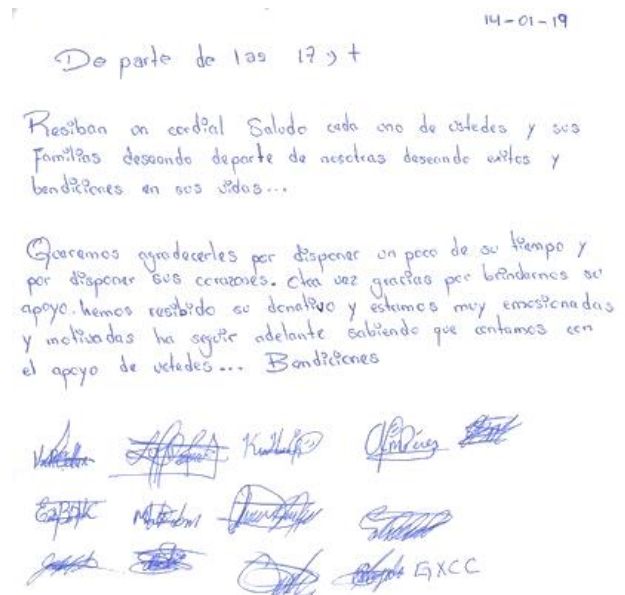 14-01-19
De parte de las 17 y +
Resiban un cordial Saludo cada uno de ustedes y sus
Familias deseando departe de nosotras deseando exitos y
bendiciones en sus vidas...
Queremos agradecerles por disponer un poco de su tiempo y
por disponer sus corazones. otra vez gracias por brindarnos su
apoyo. hemos resibido su donativo y estamos muy emosionadas
y motivadas ha seguir adelante sabiendo que contamos con
el apoyo de ustedes... Bendiciones
GXCC